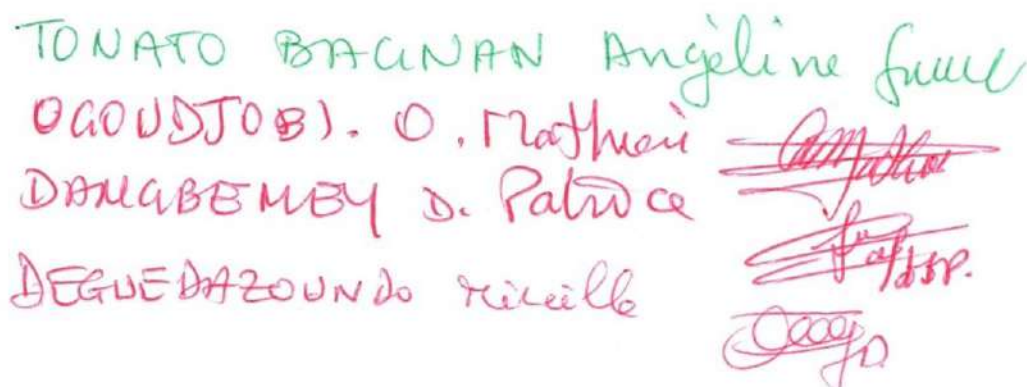 TONATO BAGNAN Angéline
OGOUDJOBI. O. Mathieu
DANGBEMEY D. Patrice
DEGUEDAZOUNDO Mireille